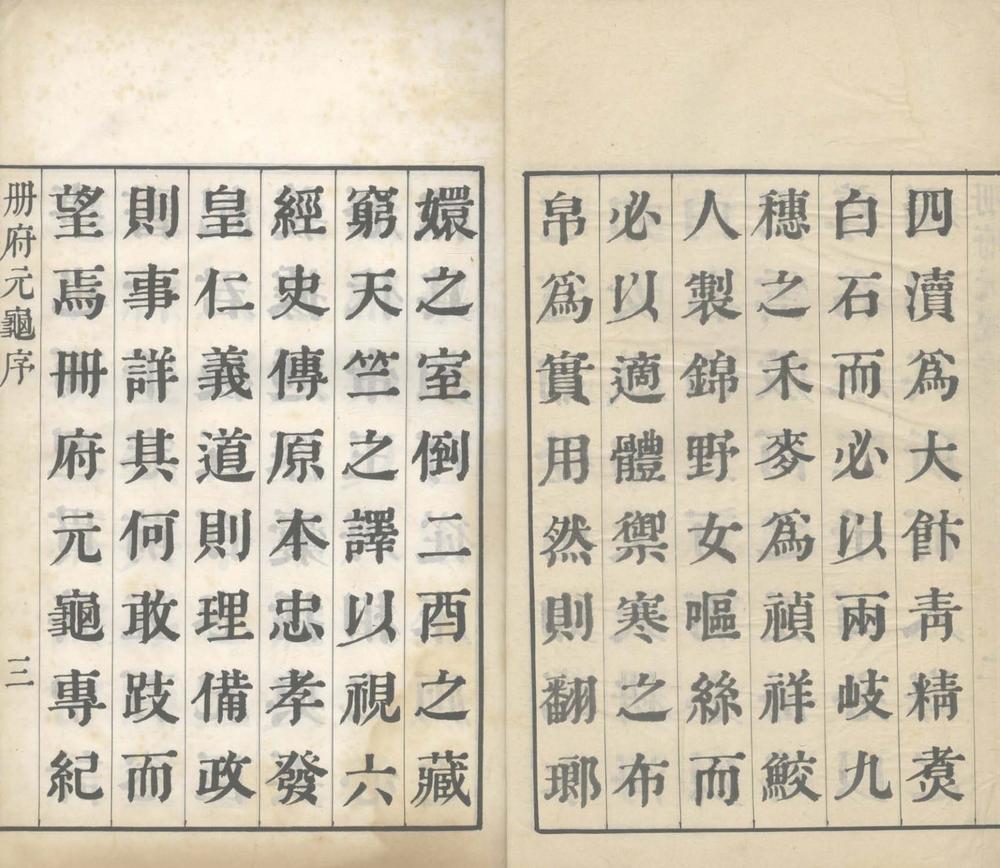 四瀆爲大飰青精煑
白石而必以兩岐九
穗之禾麥爲禎祥鮫
人製錦野女嘔絲而
必以適體禦寒之布
帛爲實用然則翻瑯
嬛之室倒二酉之藏
窮天竺之譯以視六
經史傳原本忠孝發
皇仁義道則理備政
則事詳其何敢跂而
望焉冊府元龜專紀
冊府元龜序 三